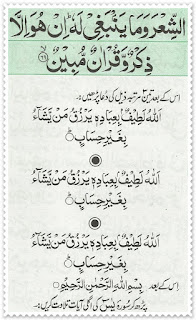 الشِّعْرَ وَمَا يَنْۢبَغِيْ لَهٗ ؕ اِنْ هُوَ اِلَّا
ذِكْرٌ وَّ قُرْاٰنٌ مُّبِيْنٌ ۙ﴿۶۹﴾
اس کے بعد تین مرتبہ ذیل کی دعا پڑھیں:۔
اَللهُ لَطِيْفٌۢ بِعِبَادِهٖ يَرْزُقُ مَنْ يَّشَآءُ
بِغَيْرِ حِسَابٍ ○
اَللهُ لَطِيْفٌۢ بِعِبَادِهٖ يَرْزُقُ مَنْ يَّشَآءُ
بِغَيْرِ حِسَابٍ ○
اَللهُ لَطِيْفٌۢ بِعِبَادِهٖ يَرْزُقُ مَنْ يَّشَآءُ
بِغَيْرِ حِسَابٍ ○
اس کے بعد بِسْمِ اللهِ الرَّحْمٰنِ الرَّحِيْمِ ○
پڑھ کر سُورۃ یٰسٓ کی اگلی آیات تلاوت کریں:۔